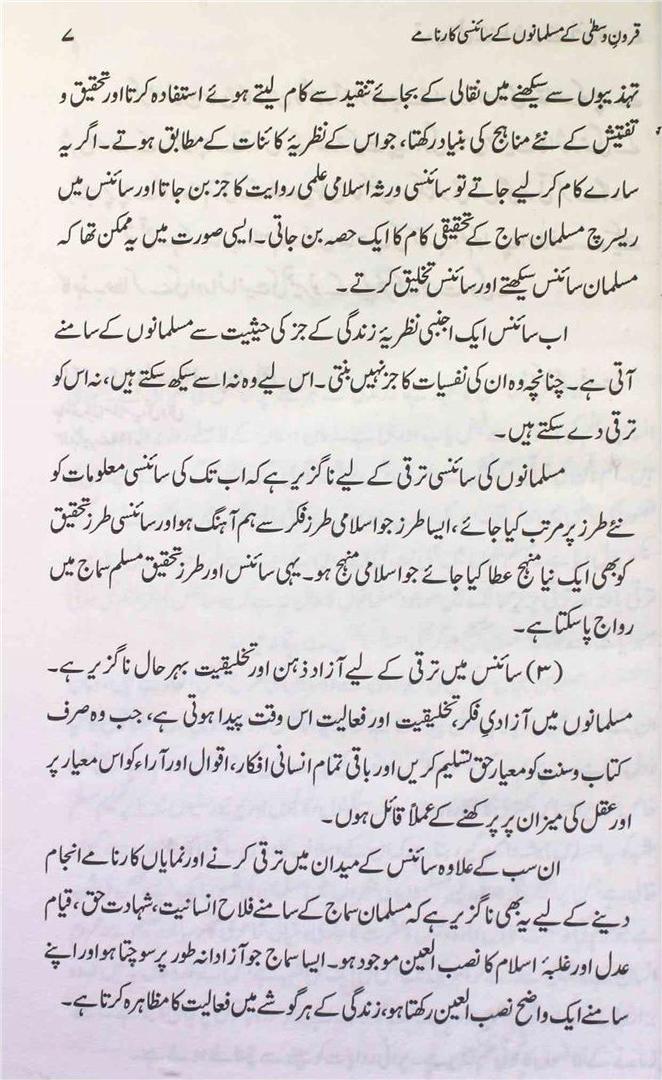 قرونِ وسطیٰ کے مسلمانوں کے سائنسی کارنامے ۷
تہذیبوں سے سیکھنے میں نقالی کے بجائے تنقید سے کام لیتے ہوئے استفادہ کرتا اور تحقیق و
تفتیش کے نئے مناہج کی بنیاد رکھتا، جو اس کے نظریۂ کائنات کے مطابق ہوتے۔ اگر یہ
سارے کام کر لیے جاتے تو سائنسی ورثہ اسلامی علمی روایت کا جز بن جاتا اور سائنس میں
ریسرچ مسلمان سماج کے تحقیقی کام کا ایک حصہ بن جاتی۔ ایسی صورت میں یہ ممکن تھا کہ
مسلمان سائنس سیکھتے اور سائنس تخلیق کرتے۔
اب سائنس ایک اجنبی نظریۂ زندگی کے جز کی حیثیت سے مسلمانوں کے سامنے
آتی ہے۔ چنانچہ وہ ان کی نفسیات کا جز نہیں بنتی۔ اس لیے وہ نہ اسے سیکھ سکتے ہیں، نہ اس کو
ترقی دے سکتے ہیں۔
مسلمانوں کی سائنسی ترقی کے لیے ناگزیر ہے کہ اب تک کی سائنسی معلومات کو
نئے طرز پر مرتب کیا جائے، ایسا طرز جو اسلامی طرز فکر سے ہم آہنگ ہو اور سائنسی طرز تحقیق
کو بھی ایک نیا منہج عطا کیا جائے جو اسلامی منہج ہو۔ یہی سائنس اور طرز تحقیق مسلم سماج میں
رواج پا سکتا ہے۔
(۳) سائنس میں ترقی کے لیے آزاد ذہن اور تخلیقیت بہر حال ناگزیر ہے۔
مسلمانوں میں آزادیِ فکر، تخلیقیت اور فعالیت اس وقت پیدا ہوتی ہے، جب وہ صرف
کتاب و سنت کو معیار حق تسلیم کریں اور باقی تمام انسانی افکار، اقوال اور آراء کو اس معیار پر
اور عقل کی میزان پر پرکھنے کے عملاً قائل ہوں۔
ان سب کے علاوہ سائنس کے میدان میں ترقی کرنے اور نمایاں کارنامے انجام
دینے کے لیے یہ بھی ناگزیر ہے کہ مسلمان سماج کے سامنے فلاح انسانیت، شہادت حق، قیام
عدل اور غلبۂ اسلام کا نصب العین موجود ہو۔ ایسا سماج جو آزادانہ طور پر سوچتا ہو اور اپنے
سامنے ایک واضح نصب العین رکھتا ہو، زندگی کے ہر گوشے میں فعالیت کا مظاہرہ کرتا ہے۔